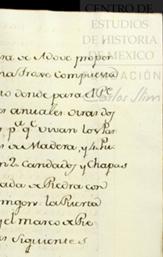 CENTRO DE
ESTUDIOS
DE HISTORIA
DE MEXICO
FUNDACIÓN
Carlos Slim
ra de Adove propor
na Trave compuesta
to donde para el Pe
s anuales otras dos
pa qe vivan los Pas
s de Madera, y 4 Pu
n 2 Candados y Chapas
ada de Piedra con
la Puerta
y el marco de Pie
s siguientes